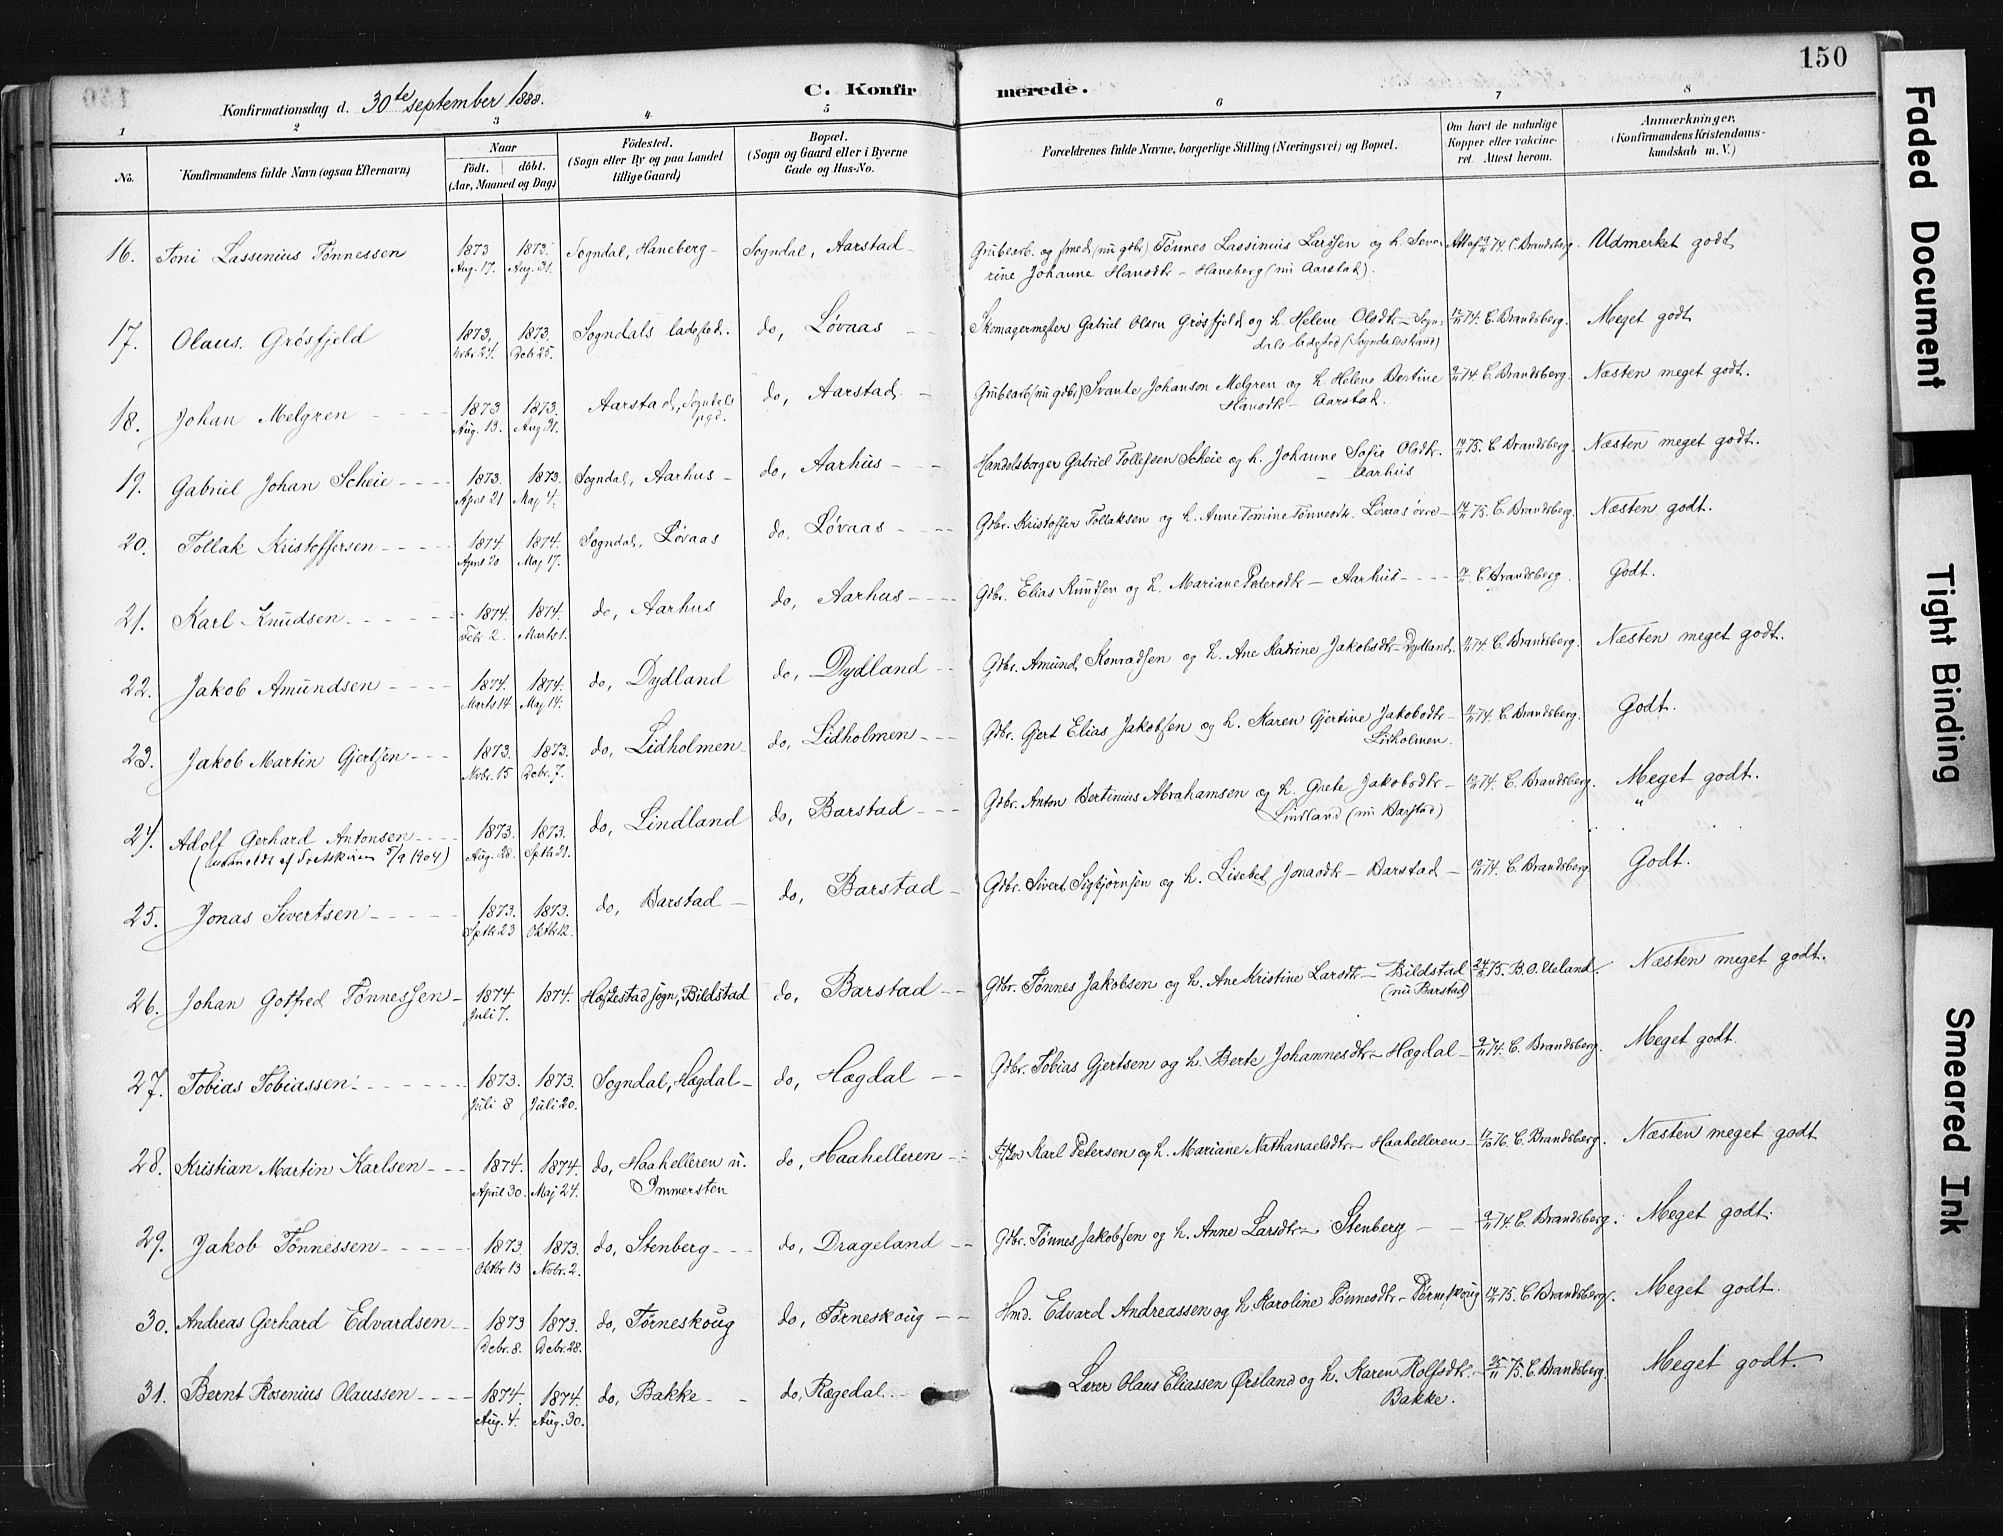 150
Konfirmationsdag d. 30te september 1888.
C. Konfirmerede.
1 2 3 4. 5 6 7 8
No.
Konfirmandens fulde Navn (ogsaa Efternavn)
Naar
født. døbt.
(Aar, Maaned og Dag)
Födested.
(Sogn eller By og paa Landet
tillige Gaard)
Bopæl.
(Sogn og Gaard eller i Byerne
Gade og Hus-No.
Forældrenes fulde Navne, borgerlige Stilling (Næringsvei) og Bopæl.
Om havt de naturlige
Kopper eller vakcine-
ret. Attest herom.
Anmærkninger,
(Konfirmandens Kristendoms-
kundskab m. V.)
16. Toni Lassenius Tønnessen 1873 1873. Sogndal, Haneberg - Sogndal, Aarstad - Grubearb. og smed (nu gdbr) Tønnes Lassinius Larssen og h. Seve- Att af 9/11 74 C. Brandsberg. Udmerket godt
Aug. 17. Aug. 31. rine Johanne Hansdtr - Haneberg (nu Aarstad).
17. Olaus. Grøsfjeld 1873. 1873. Sogndals ladested. do, Løvaas - - Skomagermester Gabriel Olsen Grøsfjeld og h. Helene Olsdtr - Sogn- 74. C. Brandsberg. Meget godt
Nvbr. 24. Debr 25. dals ladested (Sogndalsstrand)
18. Johan Melgren - - - 1873 1873. Aarstad, Sogndals do, Aarstad. - Grubearb (nu gdbr) Svante Johanson Melgren og h. Helene Bertine 9/11 74. C. Brandsberg. Næsten meget godt.
Aug. 13. Aug 31. pgd. Hansdtr - Aarstad.
19. Gabriel Johan Scheie - - - 1873. 1873. Sogndal, Aarhus - do, Aarhus - - - Handelsborger Gabriel Tollefsen Scheie og h. Johanne Sofie Olsdtr. 75. C. Brandsberg. Næsten meget godt.
April 21 Maj 4. - Aarhus
20. Tollak Kristoffersen - - - - 1874. 1874. Sogndal, Løvaas do, Løvaas - - - Gdbr. Kristoffer Tollaksen og h. Anne Tomine Tønnesdtr. Løvaas øvre - 75. C. Brandsberg. Næsten godt.
April 20 Maj 17.
21. Karl Knudsen - - - - 1874. 1874. do, Aarhus do, Aarhus - - - Gdbr. Elias Knudsen og h. Mariane Pedersdtr - Aarhus - - - C. Brandsberg. Godt.
Febr 2. Marts 1.
22. Jakob Amundsen - - - - 1874. 1874. do, Dydland do, Dydland - - Gdbr. Amund Konradsen og h. Ane Katrine Jakobsdtr - Dydland. 74. C. Brandsberg. Næsten meget godt.
Marts 14 Maj 14.
23. Jakob Martin Gjertsen - - - 1873. 1873. do, Lidholmen - do, Lidholmen - - - Gdbr. Gjert Elias Jakobsen og h. Karen Gjertine Jakobsdtr - 74. C. Brandsberg. Godt.
Nvbr. 15 Debr. 7. Lidholmen.
24. Adolf Gerhard Antonsen - - - 1873. 1873. do, Lindland do, Barstad - - - Gdbr. Anton Bertinius Abrahamsen og h. Grete Jakobsdtr - 74. C. Brandsberg. Meget godt.
(udmeldt af 5/9 1904) Aug. 28. Sptb 21. Lindland (nu Barstad) "
25. Jonas Sivertsen - - - - 1873. 1873. do, Barstad - do, Barstad - Gdbr. Sivert Sigbjørnsen og h. Lisebet Jonasdtr - Barstad - 74. C. Brandsberg Godt.
Sptb 23 Oktb 12.
26. Johan Gotfred Tønnessen - 1874 1874. Hæskestad sogn, Bildstad do, Barstad - - Gdbr. Tønnes Jakobsen og h. Ane Kristine Larsdtr - Bildstad 75. B. O. Ueland. Næsten meget godt.
Juli 7. (nu Barstad)
27. Tobias Tobiassen. - - - - 1873. 1873. Sogndal, Hægdal - do, Hægdal - - Gdbr. Tobias Gjertsen og h. Berte Johannesdtr - Hægdal - 9/11 74. C. Brandsberg. Meget godt.
Juli 8 Juli 20.
28. Kristian Martin Karlsen - - - 1874. 1874. do, Haahelleren u. do, Haahelleren - - Karl Petersen og h. Mariane Nathanaelsdtr - Haahelleren - 76. C. Brandsberg. Næsten meget godt
April 30. Maj 24. Immersten
29. Jakob Tønnessen - - - - 1873. 1873. do, Stenberg - - - do, Drageland - - Gdbr. Tønnes Jakobsen og h. Anne Larsdtr - Stenberg - - 9/11 74. C. Brandsberg. Meget godt.
Oktbr 13 Nvbr. 2.
30. Andreas Gerhard Edvardsen - - 1873 1873. do, Tørneskoug do, Tørneskoug - - Hmd. Edvard Andreassen og h. Karoline Tønnesdtr - Tørneskoug 75. C. Brandsberg. Meget godt.
Debr. 8. Debr. 28.
31. Bernt Rosenius Olaussen - - - 1874. 1874. do, Bakke - - do, Rægedal. - Lærer Olaus Eliassen Ørsland og h. Karen Rolfsdtr. - 25/11 75. C. Brandsberg. Meget godt.
Aug. 4. Aug. 30. Bakke.
Faded Document
Tight Binding
Smeared Ink